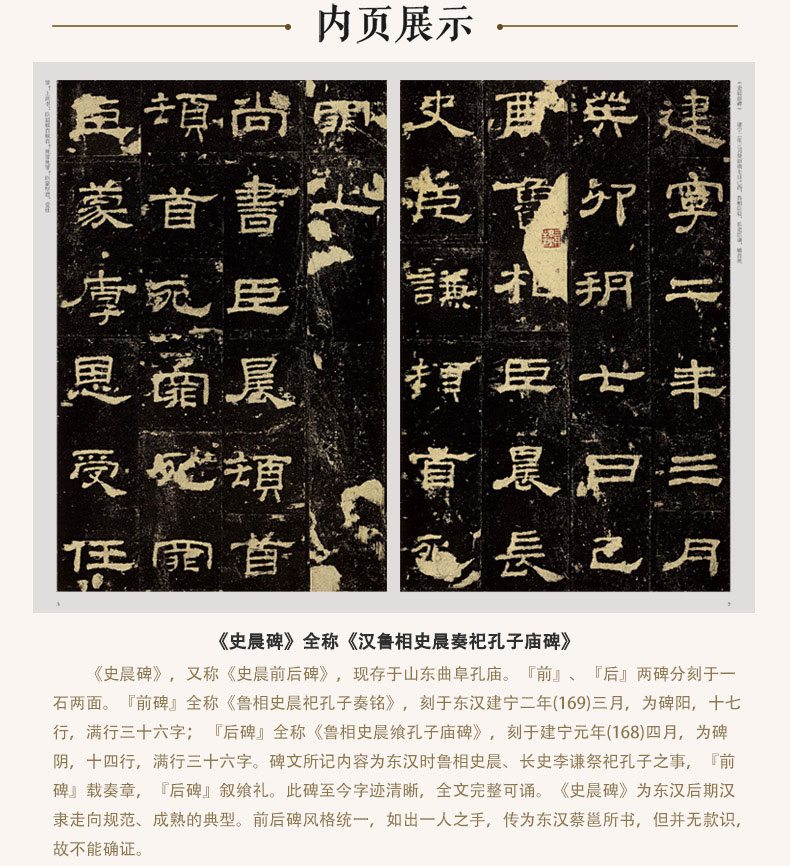 内页展示
建寧二年三月
癸卯朔七日己
酉魯相臣晨長
史臣謙頓首死
罪上
尚書臣晨頓首
頓首死罪死罪
臣蒙厚恩受任
《史晨碑》全称《汉鲁相史晨奏祀孔子庙碑》
《史晨碑》,又称《史晨前后碑》,现存于山东曲阜孔庙。『前』、『后』两碑分刻于一
石两面。『前碑』全称《鲁相史晨祀孔子奏铭》,刻于东汉建宁二年(169)三月,为碑阳,十七
行,满行三十六字;『后碑』全称《鲁相史晨飨孔子庙碑》,刻于建宁元年(168)四月,为碑
阴,十四行,满行三十六字。碑文所记内容为东汉时鲁相史晨、长史李谦祭祀孔子之事,『前
碑』载奏章,『后碑』叙飨礼。此碑至今字迹清晰,全文完整可诵。《史晨碑》为东汉后期汉
隶走向规范、成熟的典型。前后碑风格统一,如出一人之手,传为东汉蔡邕所书,但并无款识,
故不能确证。